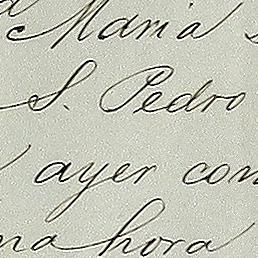 Maria
S. Pedro
ayer con
na hora